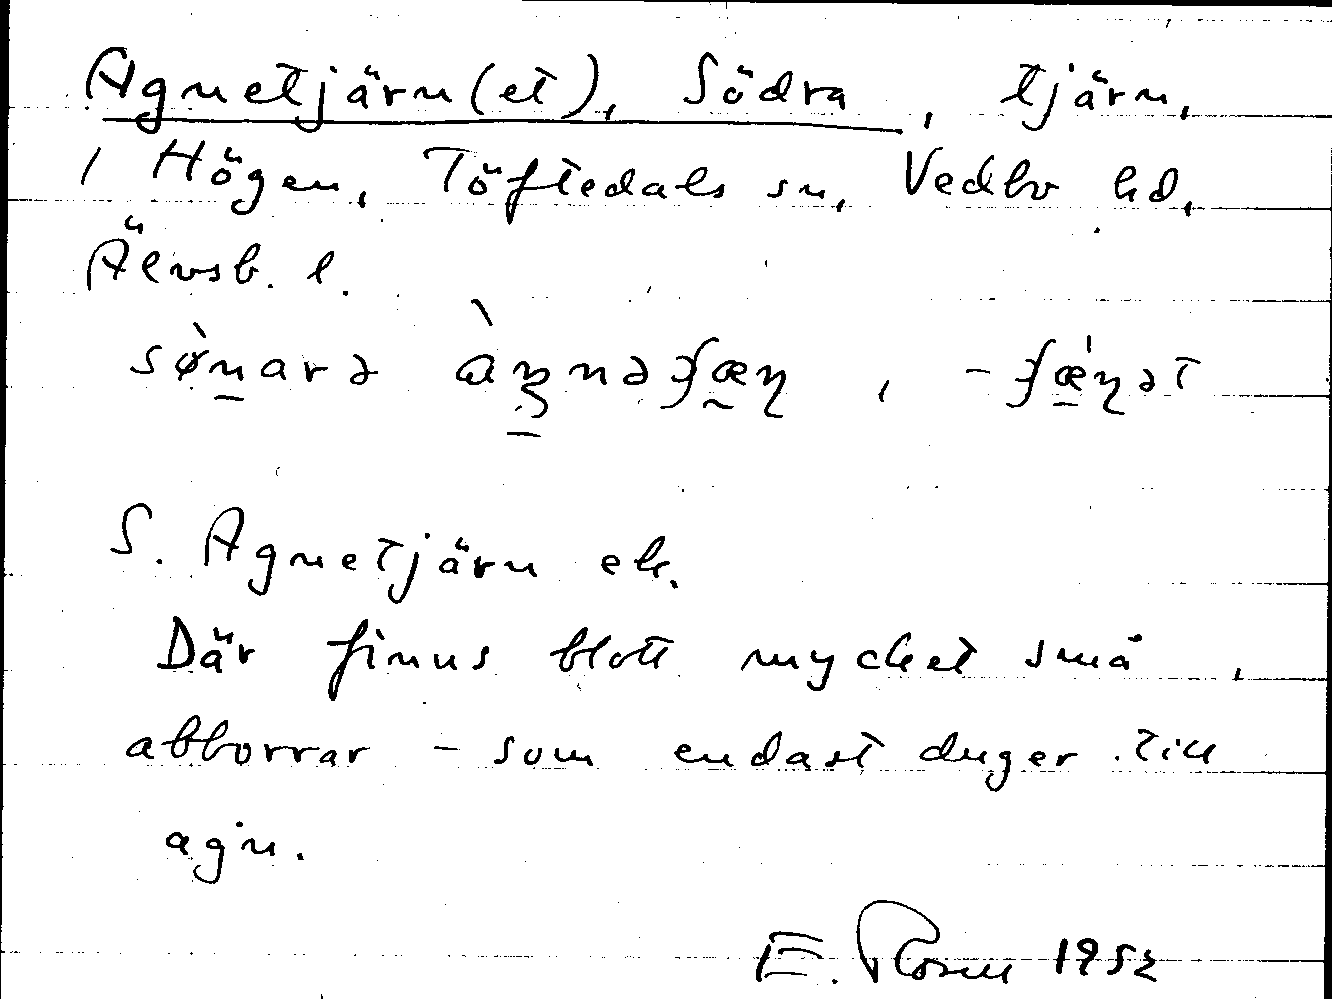 Agnetjärn(et), Södra, tjärn,
1 Högen, Töftedals sn, Vedbo hd,
Älvsb. l.
S. Agnetjärn ek.
Där finns blott mycket små
abborrar – som endast duger till
agn.
E. Rosell 1952